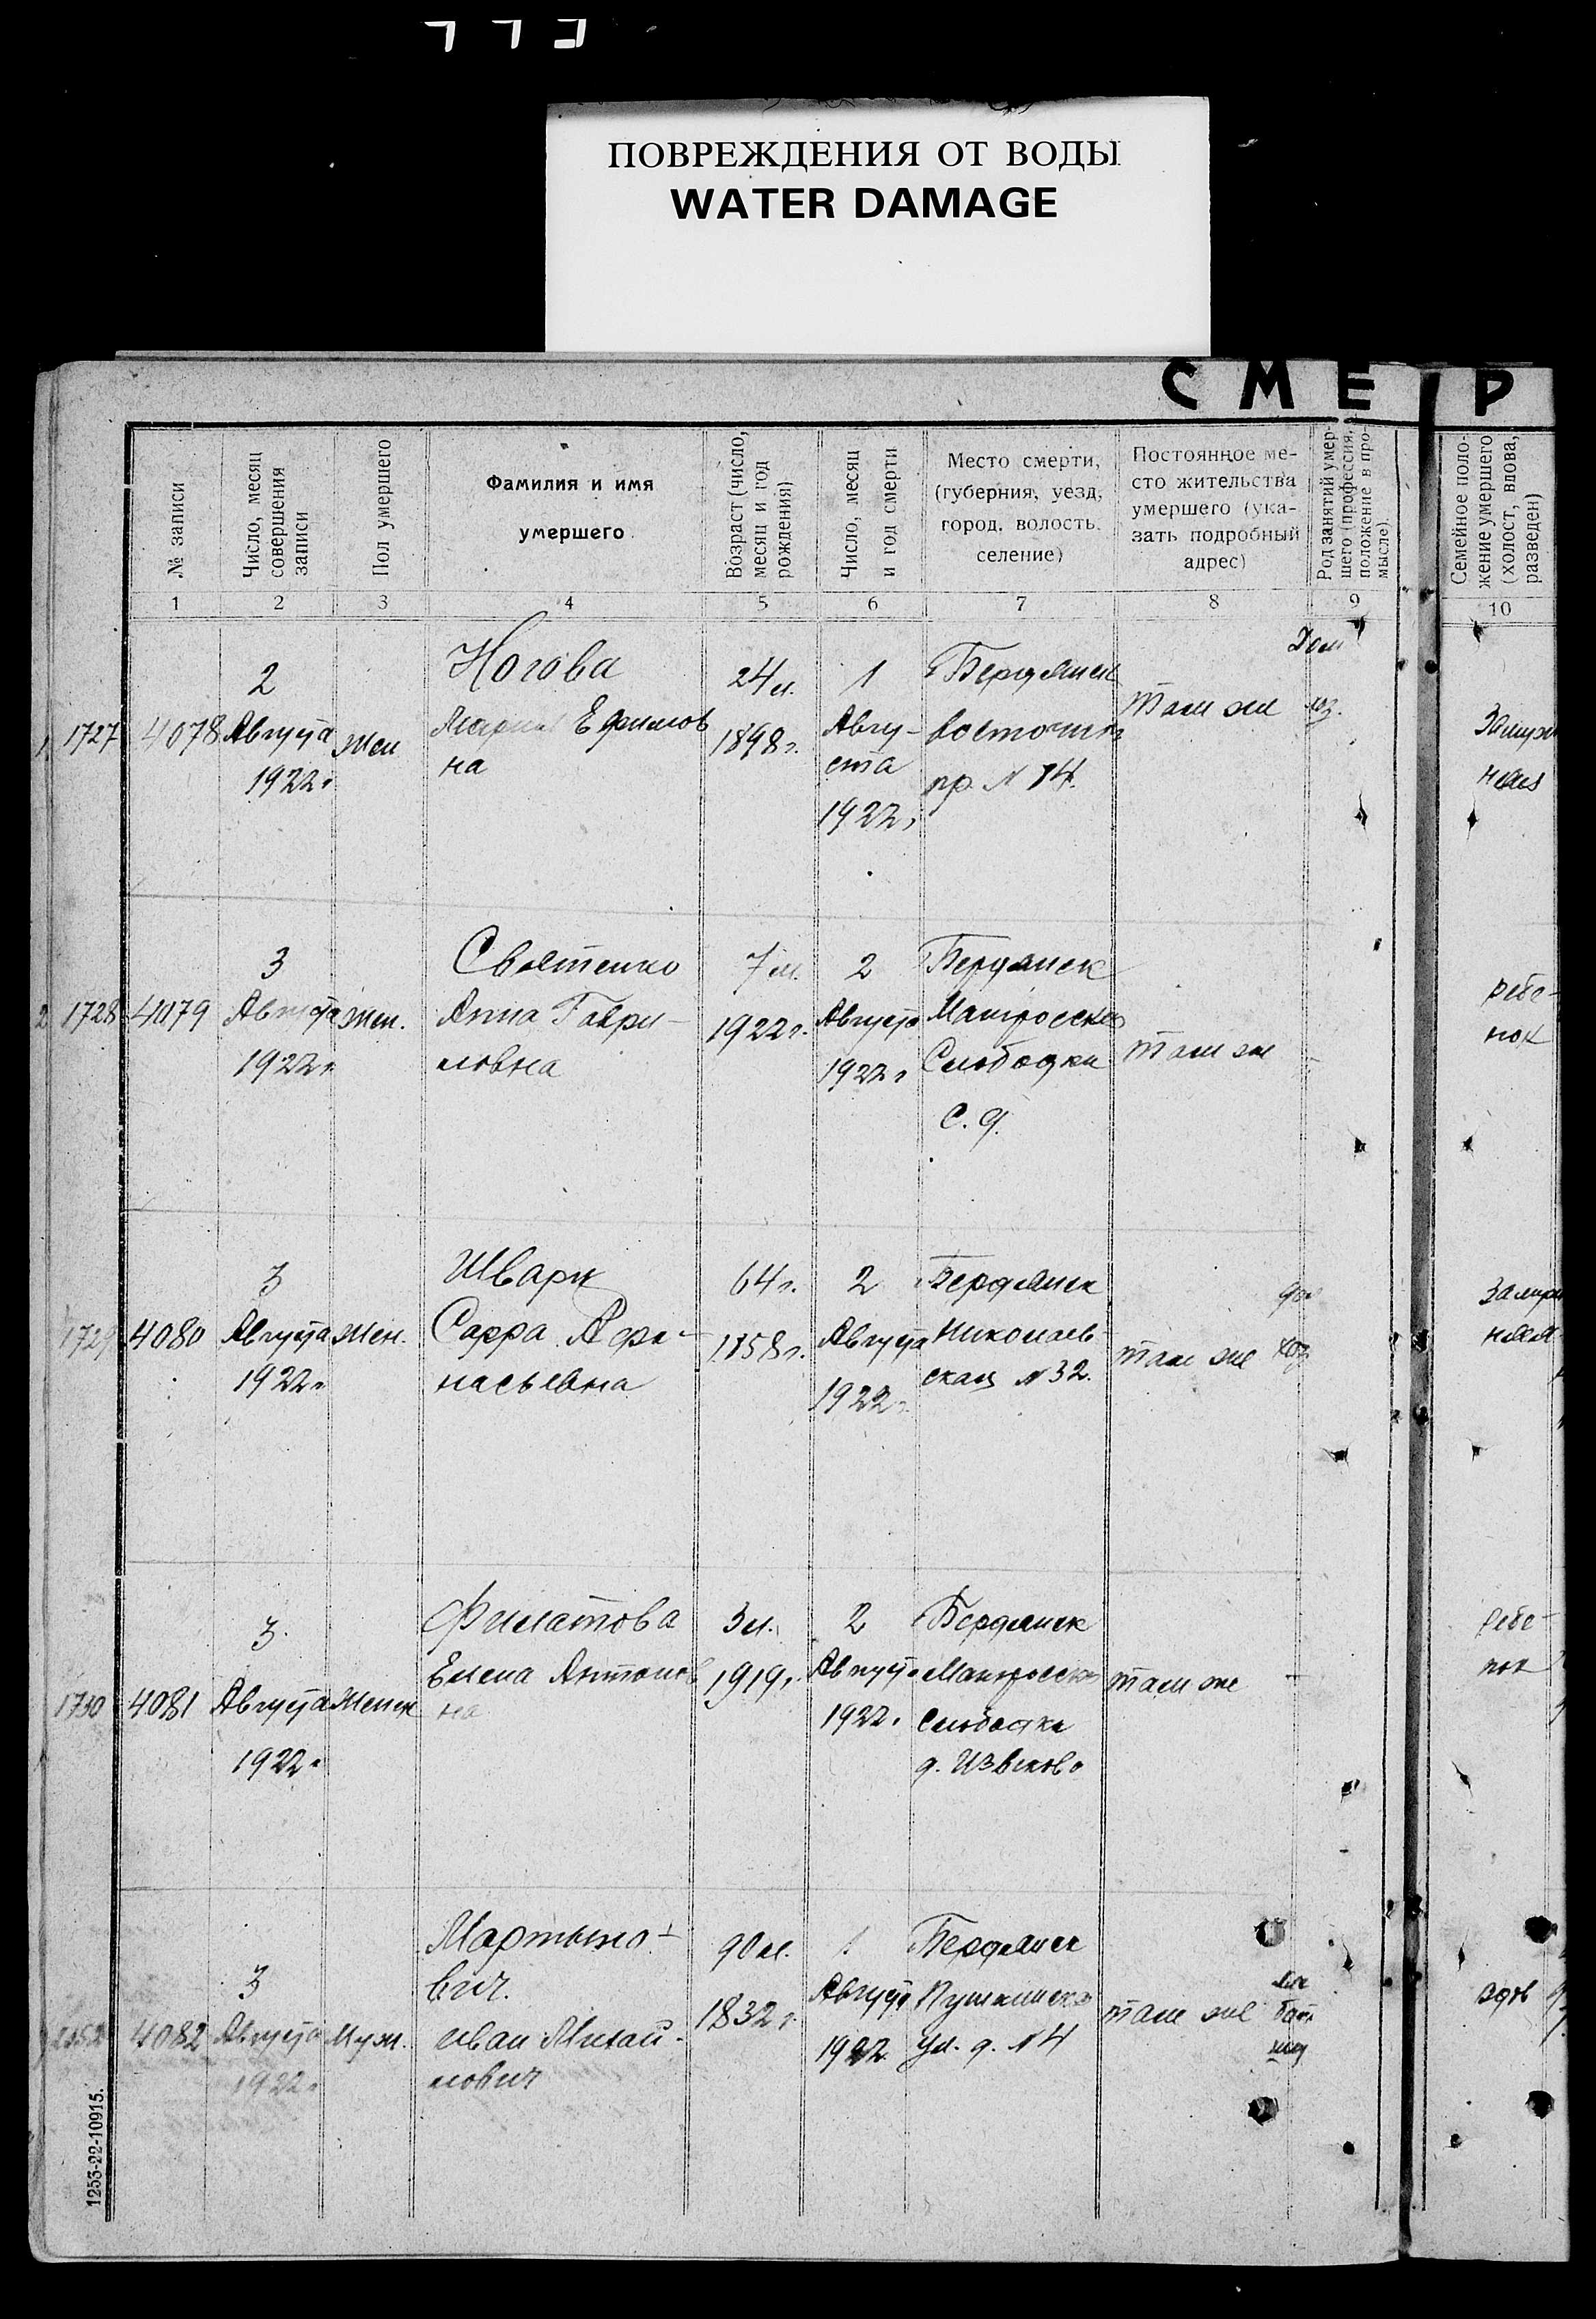 ПОВРЕЖДЕНИЯ ОТ ВОДЫ
WATER DAMAGE
СМЕР
№ записи
Число, месяц
совершения
записи
Пол умершего
Фамилия и имя
умершего
Возраст (число,
месяц и год
рождения)
Число, месяц
и год смерти
Место смерти,
(губерния, уезд,
город, волость,
селение)
Постоянное ме-
сто жительства
умершего (ука-
зать подробный
адрес)
Род занятий умер-
шего (профессия,
положение в про-
мысле).
Семейное поло-
жение умершего
(холост, вдова,
разведен)
1 2 3 4 5 6 7 8 9 10
1727
4078
2
Августа
1922г
жен
Ногова
Мария Ефимов
на
24 л.
1898г.
1
Авгу-
ста
1922г
Бердянск
восточный
пр. N 14.
там же
Дом
хоз.
Замуж
няя
2
1728
4079
3
Августа
1922г
жен.
Святенко
Анна Гаври-
ловна
7 м.
1922г.
2
Августа
1922г
Бердянск
Матросская
Слободка
с. д.
там же
-
ребе-
нок
1729
4080
3
Августа
1922г
жен.
Шварц
Сарра Афа-
насьевна
64г.
1858г.
2
Августа
1922г.
Бердянск
Николаев-
ская N 32.
там же
дом
хоз
замуж
няя
1730
4081
3
Августа
1922г
женск
Филатова
Елена Антонов
на
3 л.
1919г.
2
Августа
1922г
Бердянск
Матросская
слободка
там же
-
ребе-
нок
4082
3
Августа
1922г
Муж.
Мартыно-
вич.
Иван Михай-
лович
90 л.
1832г.
1
Августа
1922
Бердянск
Пушкинская
ул. д. N 4
там же
вдов
1253-22-10915.